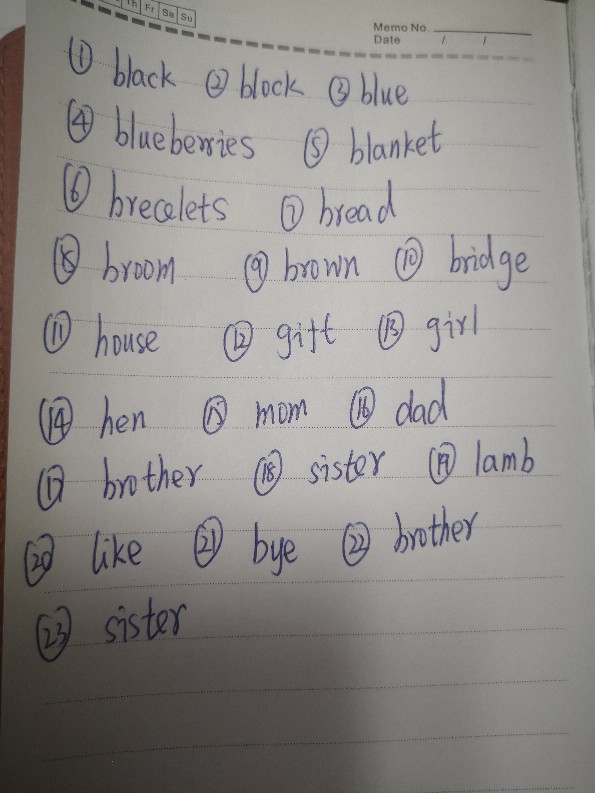 Th Fr Sa Su
Memo No.
Date / /
① black ② block ③ blue
④ blueberries ⑤ blanket
⑥ brecelets ⑦ bread
⑧ broom ⑨ brown ⑩ bridge
⑪ house ⑫ gift ⑬ girl
⑭ hen ⑮ mom ⑯ dad
⑰ brother ⑱ sister ⑲ lamb
⑳ like ㉑ bye ㉒ brother
㉓ sister